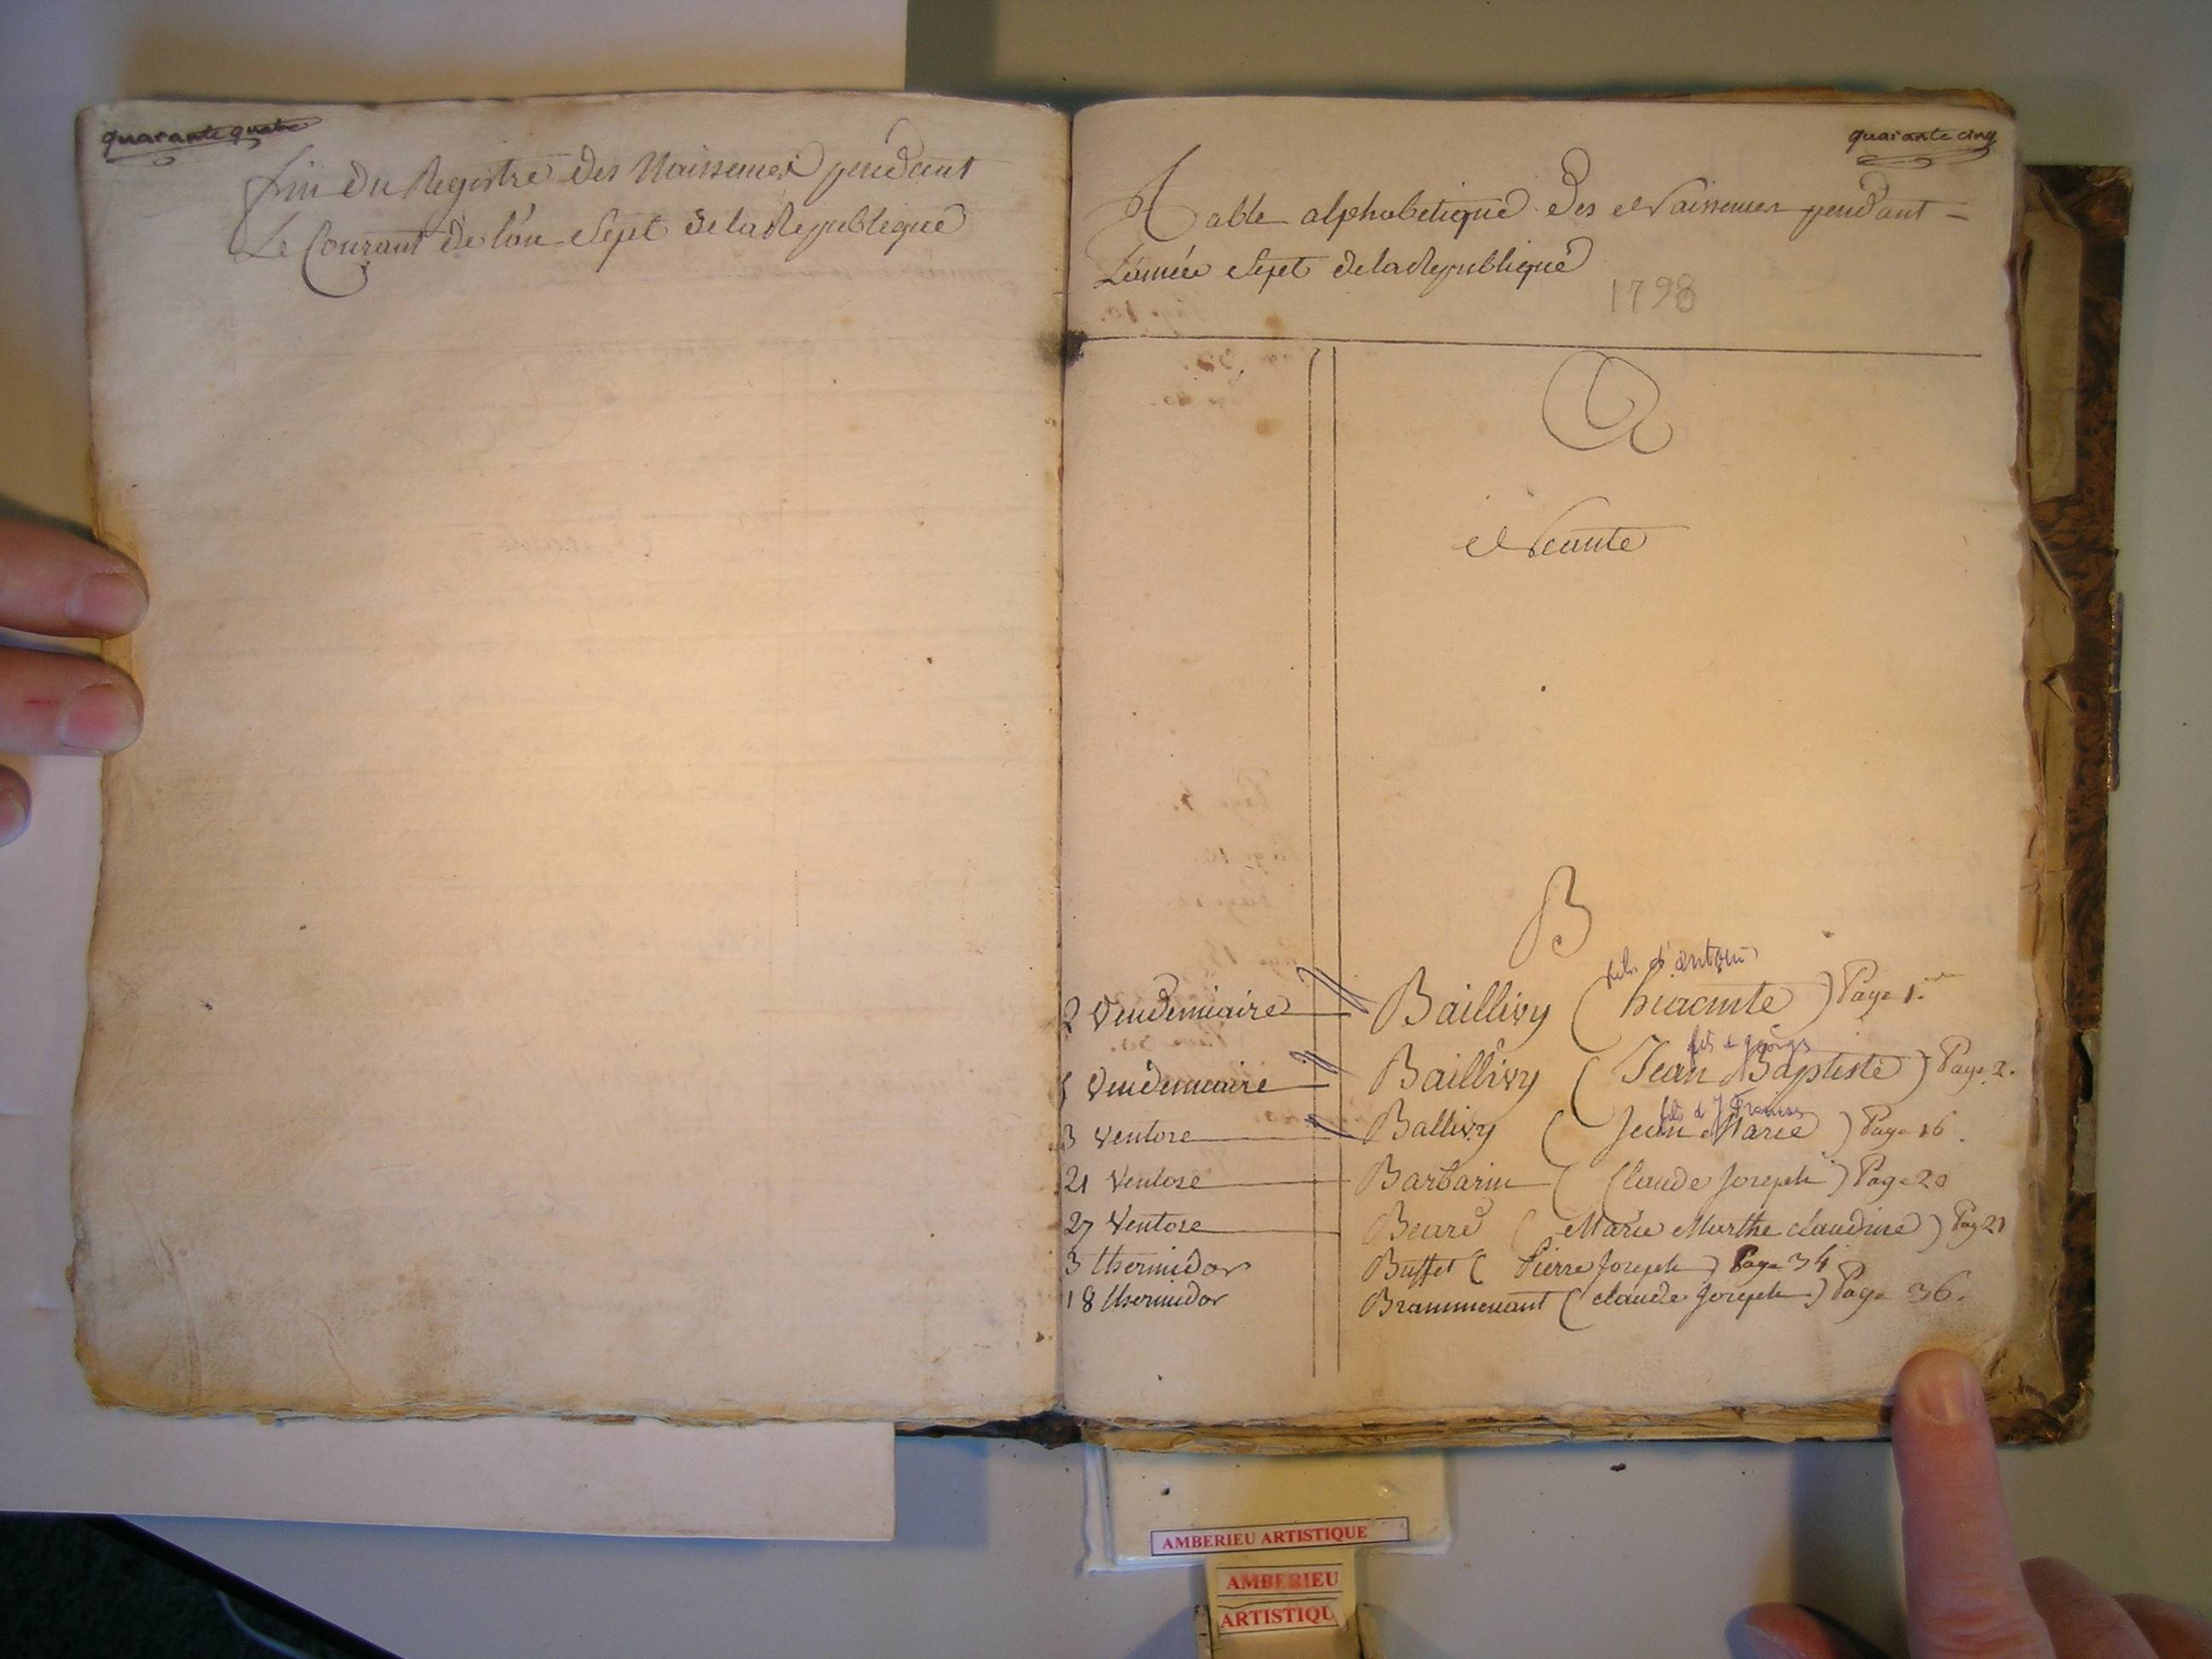 quarante quatre
fin du Registre des Naissences pendant
Le Courant de l'an Sept de la Republique
quarante cinq
Table alphabetique des Naissences pendant
L'année Sept de la Republique
1798
A
Neante
B
fils d'antoine
2 Vendemiaire Baillivy ( hiacinte ) Page 1.
fils de georges
Vendemiaire Baillivy ( Jean Baptiste ) Page 2.
fils de J francois
3 Ventose Ballivy ( Jean Marie ) Page 16.
21 Ventose Barbarin ( Claude Joseph ) Page 20
27 Ventose Beuré ( Marie Marthe claudine ) Pag 21
3 thermidor Buffet ( Pierre Joseph ) Page 34
18 thermidor Brammenant ( claude Joseph ) Page 36.
AMBERIEU ARTISTIQUE
AMBERIEU
ARTISTIQU